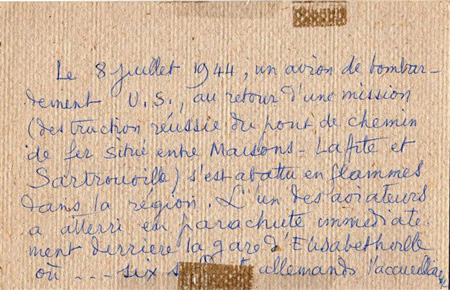 Le 8 juillet 1944, un avion de bombar-
dement U.S., au retour d'une mission
(destruction réussie du pont de chemin
de fer situé entre Maisons-Lafite et
Sartrouville) s'est abattu en flammes
dans la région. L'un des aviateurs
a atterri en parachute immédiate-
ment derrière la gare d'Elisabethville
où --- six allemands l'accueillaient